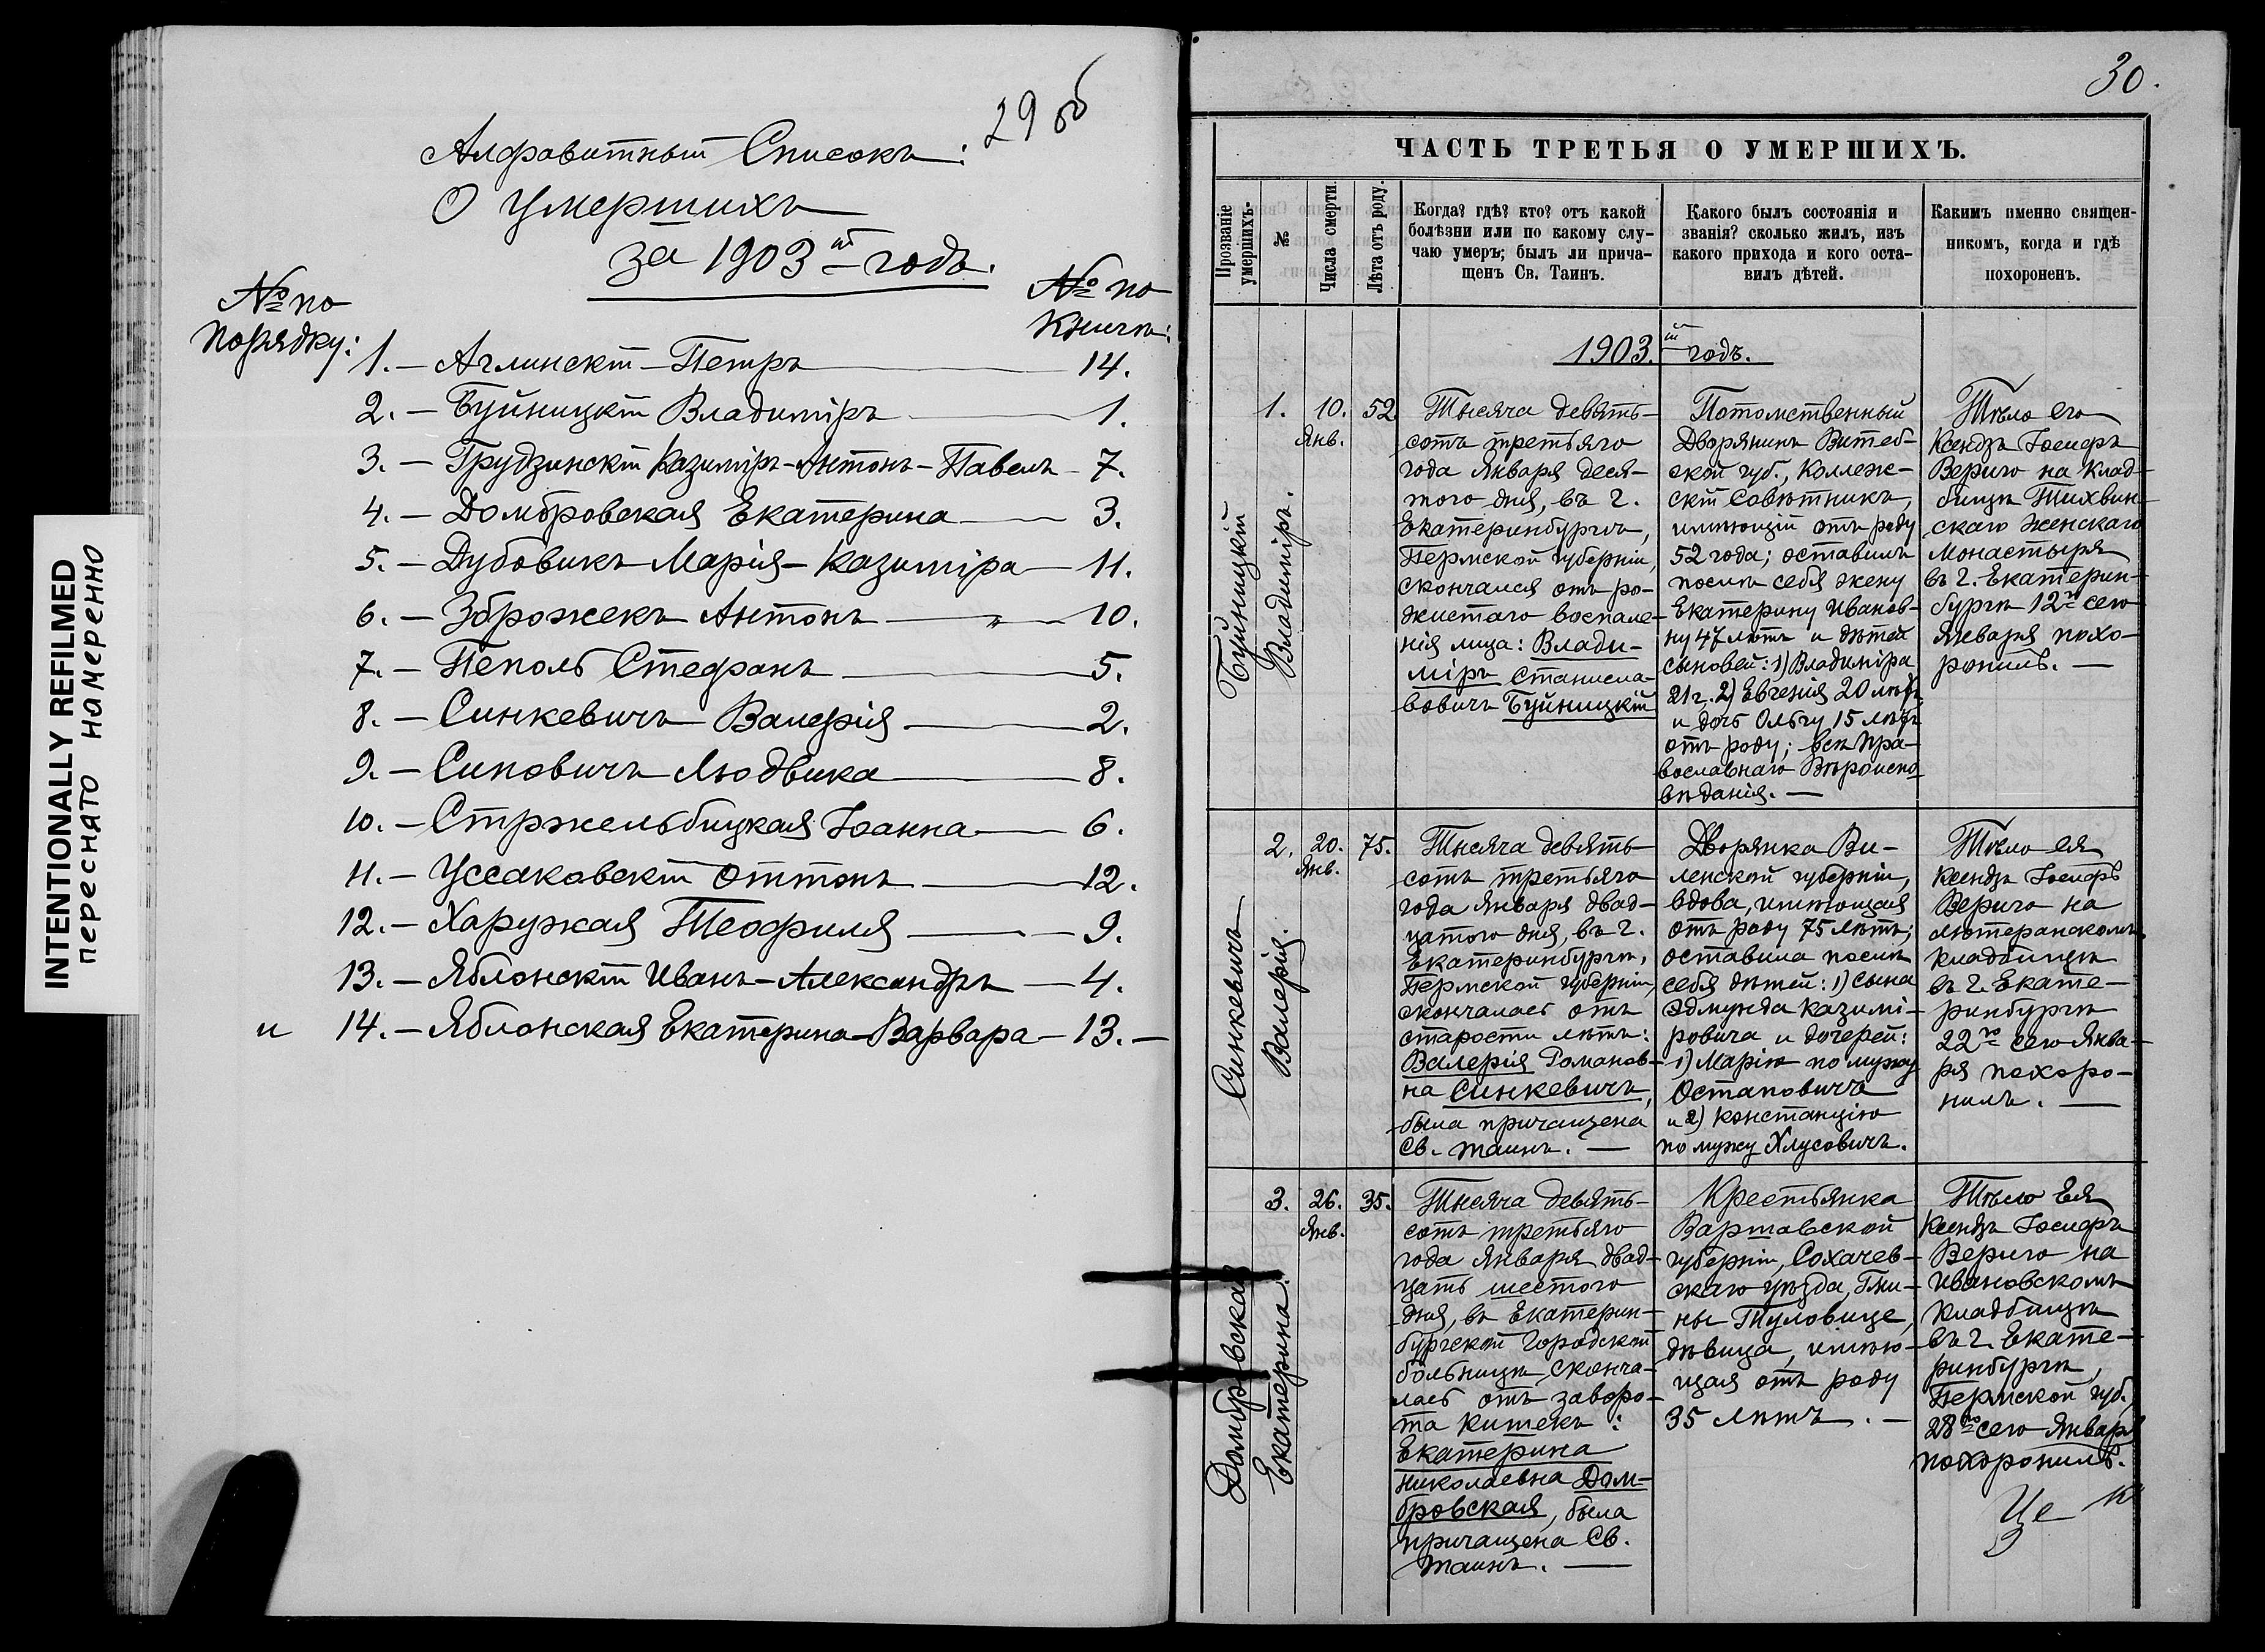 INTENTIONALLY REFILMED
переснято намеренно
29 об
Алфавитный Списокъ:
О Умершихъ
за 1903 ий годъ.
№ по порядку:
№ по книгѣ:
1. — Аглинскій — Петръ — 14.
2. — Буйницкій Владиміръ — 1.
3. — Грудзинскій Казиміръ-Антонъ-Павелъ — 7.
4. — Домбровская Екатерина — 3.
5. — Дубовикъ Марія-Казиміра — 11.
6. — Зброжекъ Антонъ — " — 10.
7. — Пеполь Стефанъ — 5.
8. — Синкевичъ Валерія — 2.
9. — Сиповичъ Людвика — 8.
10. — Стржельбицкая Іоанна — 6.
11. — Уссаковскій Оттонъ — 12.
12. — Харужая Теофиля — 9.
13. — Яблонскій Иванъ-Александръ — 4.
и 14. — Яблонская Екатерина-Варвара — 13. —
30.
ЧАСТЬ ТРЕТЬЯ О УМЕРШИХЪ.
Прозваніе
умершихъ.
№
Числа смерти.
Лѣта отъ роду.
Когда? гдѣ? кто? отъ какой
болѣзни или по какому слу-
чаю умеръ; былъ ли прича-
щенъ Св. Таинъ.
Какого былъ состоянія и
званія? сколько жилъ, изъ
какого прихода и кого оста-
вилъ дѣтей.
Какимъ именно священ-
никомъ, когда и гдѣ
похороненъ.
1903. ій годъ.
Буйницкій
Владиміръ.
1.
10.
Янв.
52
Тысяча девять-
сотъ третьяго
года Января деся-
того дня, въ г.
Екатеринбургѣ,
Пермской губерніи,
скончался отъ ро-
жистаго воспале-
нія лица: Влади-
міръ Станисла-
вовичъ Буйницкій
Потомственный
Дворянинъ Витеб-
ской губ., Коллеж-
скій Совѣтникъ,
имѣющій отъ роду
52 года; оставилъ
послѣ себя жену
Екатерину Иванов-
ну 47 лѣтъ и дѣтей
сыновей: 1) Владиміра
21 г. 2) Евгенія 20 лѣтъ
и дочь Ольгу 15 лѣтъ
отъ роду; всѣ Пра-
вославнаго Вѣроиспо-
вѣданія. —
Тѣло его
Ксендзъ Іосифъ
Вериго на клад-
бищѣ Тихвин-
скаго Женскаго
Монастыря
въ г. Екатерин-
бургѣ 12го сего
Января похо-
ронилъ. —
Синкевичъ
Валерія.
2.
20.
Янв.
75.
Тысяча девять-
сотъ третьяго
года Января двад-
цатого дня, въ г.
Екатеринбургѣ,
Пермской губерніи,
скончалась отъ
старости лѣтъ:
Валерія Романов-
на Синкевичъ,
была причащена
Св. таинъ. —
Дворянка Ви-
ленской губерніи,
вдова, имѣющая
отъ роду 75 лѣтъ;
оставила послѣ
себя дѣтей: 1) сына
Эдмунда Казимі-
ровича и дочерей:
1) Марію по мужу
Остаповичъ
и 2) Констанцію
по мужу Хлусовичъ.
Тѣло ея
Ксендзъ Іосифъ
Вериго на
лютеранскомъ
кладбищѣ
въ г. Екате-
ринбургѣ
22го сего Янва-
ря похоро-
нилъ. —
Домбровская
Екатерина.
3.
26.
Янв.
35.
Тысяча девять-
сотъ третьяго
года Января двад-
цать шестого
дня, въ Екатерин-
бургской Городской
больницѣ, сконча-
лась отъ заворо-
та кишекъ:
Екатерина
Николаевна Дом-
бровская, была
причащена Св.
таинъ. —
Крестьянка
Варшавской
губерніи, Сохачев-
скаго уѣзда, Гми-
ны Туловице,
дѣвица, имѣю-
щая отъ роду
35 лѣтъ. —
Тѣло Ея
Ксендзъ Іосифъ
Вериго на
Ивановскомъ
кладбищѣ
въ г. Екате-
ринбургѣ,
Пермской губ.,
28го сего Января
похоронилъ.